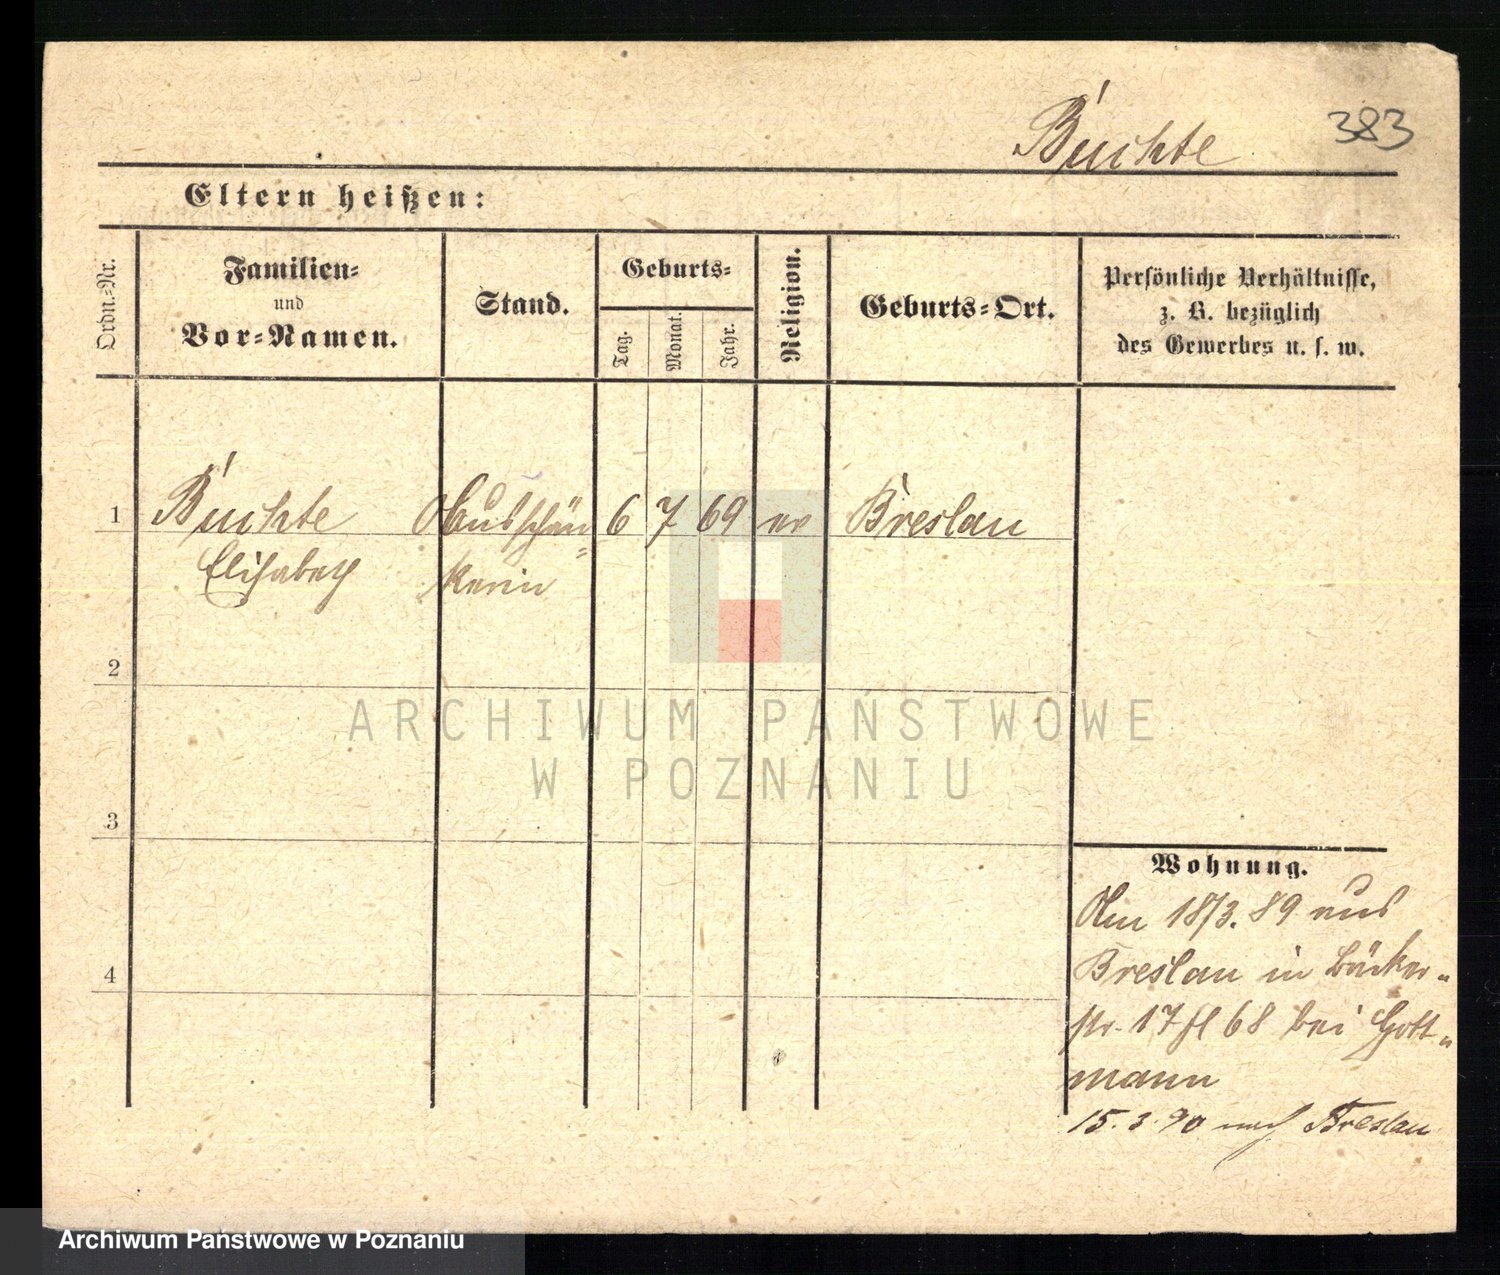 Buchte
383
Eltern heißen:
Ordn.-Nr.
Familien-
und
Vor-Namen.
Stand.
Geburts-
Tag.
Monat.
Jahr.
Religion.
Geburts-Ort.
Persönliche Verhältnisse,
z. B. bezüglich
des Gewerbes u. s. w.
1
Buchte Ausschän= 6 7 69 ev Breslau
Elisabeth kerin
2
3
4
Wohnung.
Am 18/3. 89 aus
Breslau in Bäcker-
str. 17 bei Gott-
mann
15.3.90 nach Breslau
ARCHIWUM PAŃSTWOWE
W POZNANIU
Archiwum Państwowe w Poznaniu